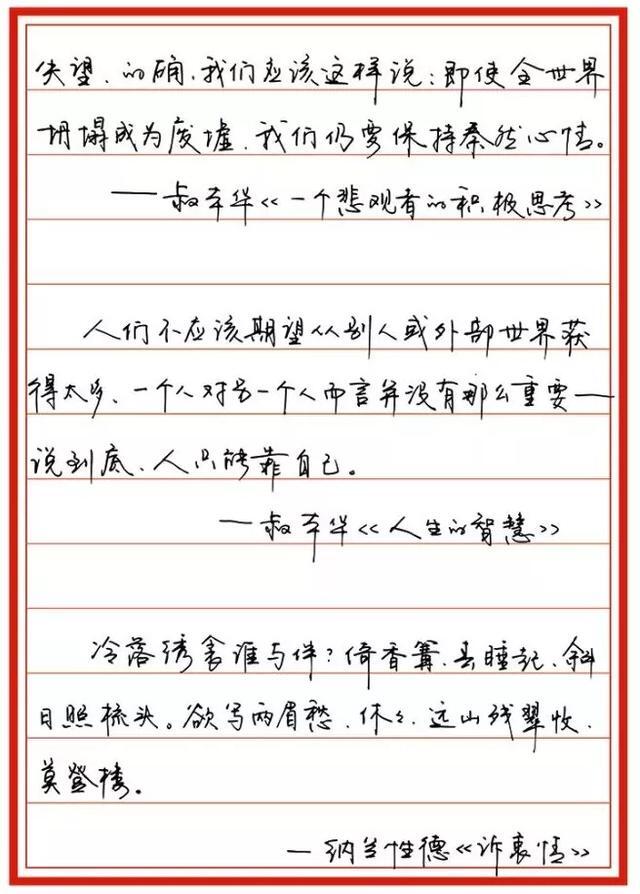 失望、的确,我们应该这样说:即使全世界
坍塌成为废墟,我们仍要保持泰然心情。
——叔本华《一个悲观者的积极思考》
人们不应该期望从别人或外部世界获
得太多、一个人对另一个人而言并没有那么重要——
说到底、人只能靠自己。
——叔本华《人生的智慧》
冷落绣衾谁与伴?倚香篝,春睡起、斜
日照梳头。欲写两眉愁、休々、远山残翠收、
莫登楼。
—纳兰性德《诉衷情》